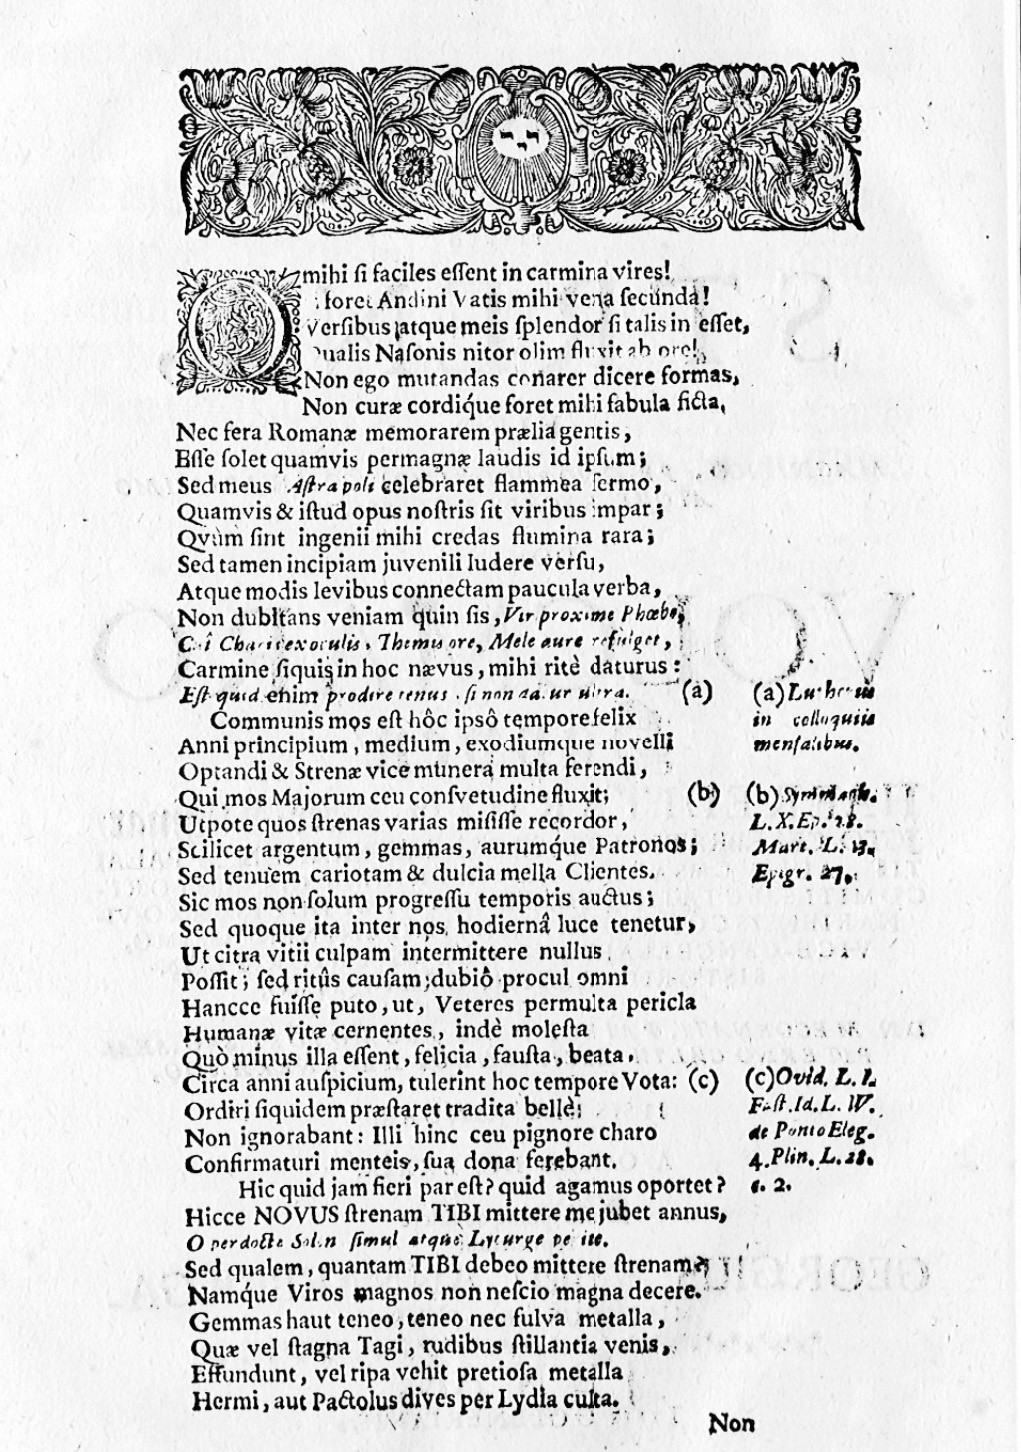 O mihi ſi faciles eſſent in carmina vires!
foret Andini Vatis mihi vena ſecunda!
Verſibus atque meis ſplendor ſi talis in eſſet,
Qualis Naſonis nitor olim fluxit ab ore!
Non ego mutandas conarer dicere formas,
Non curæ cordíque foret mihi fabula ficta,
Nec fera Romanæ memorarem prælia gentis,
Eſſe ſolet quamvis permagnæ laudis id ipſum;
Sed meus Aſtra poli celebraret flammea ſermo,
Quamvis & iſtud opus noſtris ſit viribus impar;
Qvùm ſint ingenii mihi credas flumina rara;
Sed tamen incipiam juvenili ludere verſu,
Atque modis levibus connectam paucula verba,
Non dubitans veniam quin ſis, Vir proxime Phœbo,
Cuî Charis ex oculis, Themis ore, Mele aure refulget,
Carmine ſiquis in hoc nævus, mihi ritè daturus:
Eſt quid enim prodire tenus, ſi non datur ultra. (a)
(a) Lutherus
in colloquiis
menſalibus.
Communis mos eſt hôc ipsô tempore felix
Anni principium, medium, exodiumque novelli
Optandi & Strenæ vice munera multa ferendi,
Qui mos Majorum ceu conſvetudine fluxit; (b)
(b) Symmach.
L. X. Ep. 28.
Mart. L. 13.
Epigr. 27.
Utpote quos ſtrenas varias miſiſſe recordor,
Scilicet argentum, gemmas, aurumq́ue Patronos;
Sed tenuem cariotam & dulcia mella Clientes.
Sic mos non ſolum progreſſu temporis auctus;
Sed quoque ita inter nos hodiernâ luce tenetur,
Ut citra vitii culpam intermittere nullus
Poſſit; ſed ritûs cauſam; dubiô procul omni
Hancce fuiſſe puto, ut, Veteres permulta pericla
Humanæ vitæ cernentes, indè moleſta
Quò minus illa eſſent, felicia, fauſta, beata,
Circa anni auſpicium, tulerint hoc tempore Vota: (c)
(c) Ovid. L. I.
Faſt. Id. L. IV.
de Ponto Eleg.
4. Plin. L. 28.
c. 2.
Ordiri ſiquidem præſtaret tradita bellè;
Non ignorabant: Illi hinc ceu pignore charo
Confirmaturi menteis, ſua dona ferebant.
Hic quid jam fieri par eſt? quid agamus oportet?
Hicce NOVUS ſtrenam TIBI mittere me jubet annus,
O perdocte Solon ſimul atque Lycurge perite.
Sed qualem, quantam TIBI debeo mittere ſtrenam?
Namq́ue Viros magnos non neſcio magna decere.
Gemmas haut teneo, teneo nec fulva metalla,
Quæ vel ſtagna Tagi, rudibus ſtillantia venis,
Effundunt, vel ripa vehit pretioſa metalla
Hermi, aut Pactolus dives per Lydia culta.
Non